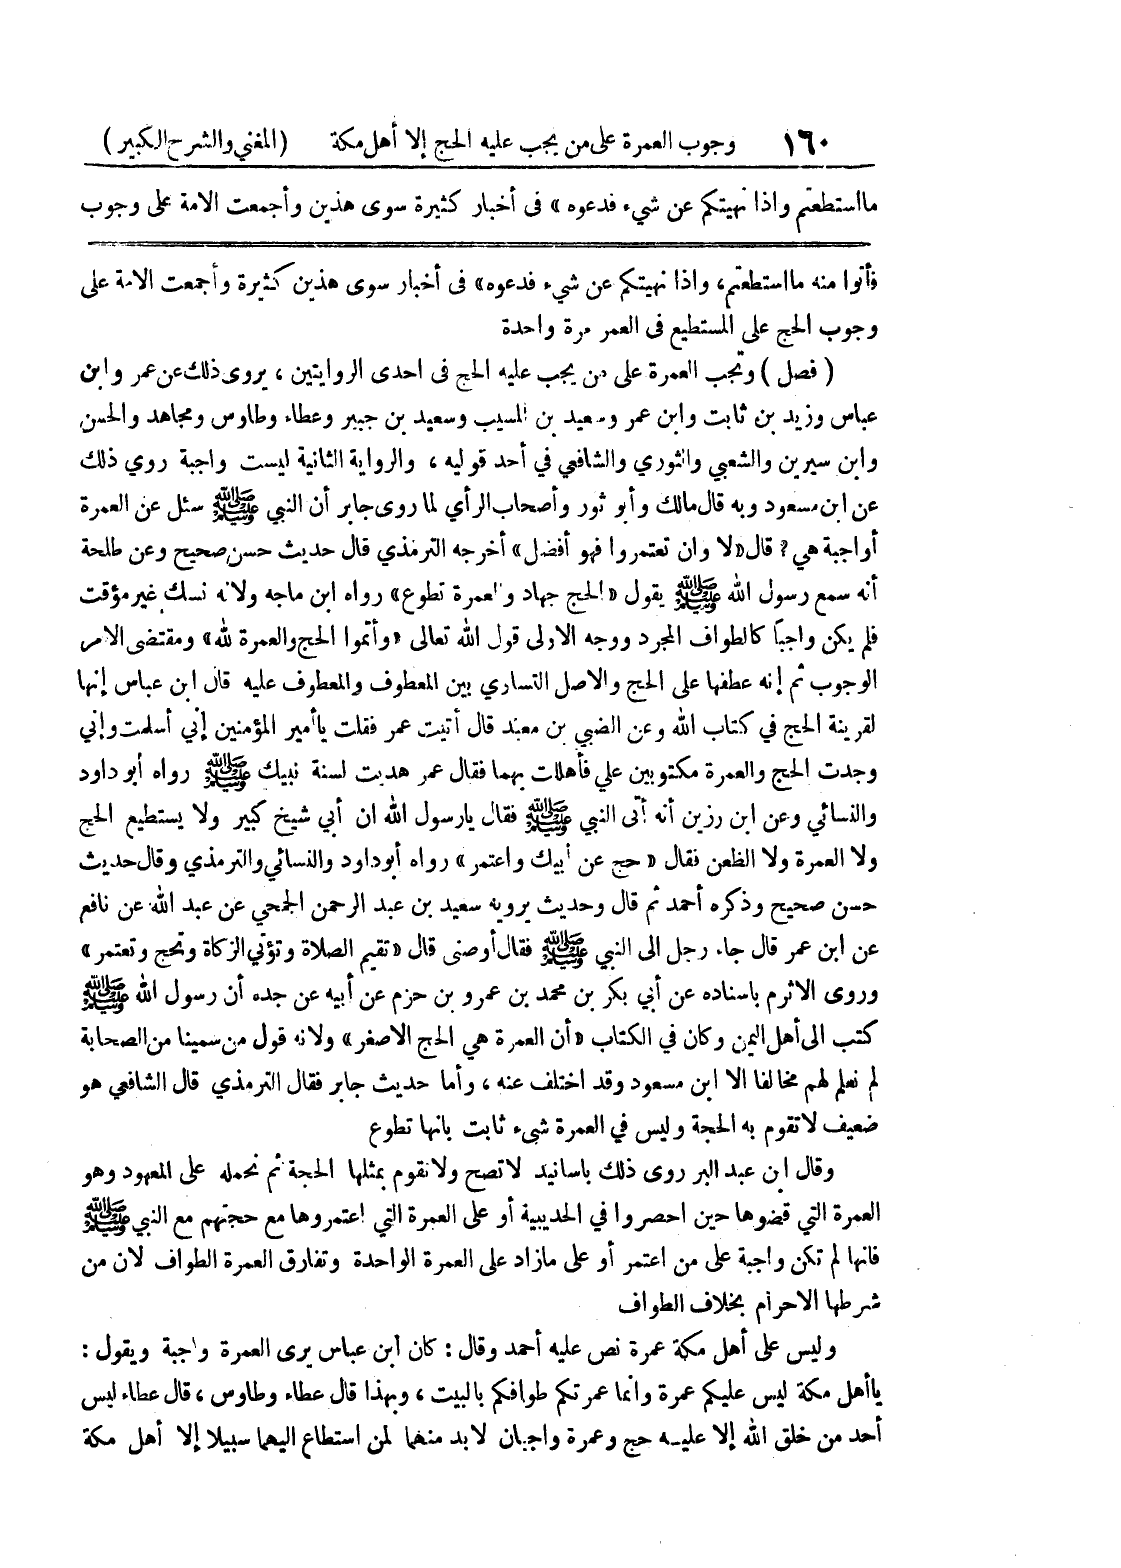 ١٦٠ وجوب العمرة على من يجب عليه الحج إلا أهل مكة (المغني والشرح الكبير)
ما استطعتم واذا نهيتكم عن شيء فدعوه » فى أخبار كثيرة سوى هذين وأجمعت الامة على وجوب
فأتوا منه ما استطعتم، واذا نهيتكم عن شيء فدعوه» فى أخبار سوى هذين كثيرة وأجمعت الامة على
وجوب الحج على المستطيع فى العمر مرة واحدة
( فصل ) وتجب العمرة على من يجب عليه الحج فى احدى الروايتين ، يروى ذلك عن عمر وابن
عباس وزيد بن ثابت وابن عمر وسعيد بن المسيب وسعيد بن جبير وعطاء وطاوس ومجاهد والحسن
وابن سيرين والشعبي والثوري والشافعي في أحد قوليه ، والرواية الثانية ليست واجبة روي ذلك
عن ابن مسعود وبه قال مالك وأبو ثور وأصحاب الرأي لما روى جابر أن النبي ﷺ سئل عن العمرة
أواجبة هي؟ قال «لا وان تعتمروا فهو أفضل» أخرجه الترمذي قال حديث حسن صحيح وعن طلحة
أنه سمع رسول الله ﷺ يقول «الحج جهاد والعمرة تطوع» رواه ابن ماجه ولانه نسك غير مؤقت
فلم يكن واجباً كالطواف المجرد ووجه الاولى قول الله تعالى «وأتموا الحج والعمرة لله» ومقتضى الامر
الوجوب ثم إنه عطفها على الحج والاصل التساوي بين المعطوف والمعطوف عليه قال ابن عباس إنها
لقرينة الحج في كتاب الله وعن الضبي بن معبد قال أتيت عمر فقلت يا أمير المؤمنين إني أسلمت وإني
وجدت الحج والعمرة مكتوبين علي فأهللت بهما فقال عمر هديت لسنة نبيك ﷺ رواه أبو داود
والنسائي وعن ابن رزين أنه أتى النبي ﷺ فقال يا رسول الله ان أبي شيخ كبير ولا يستطيع الحج
ولا العمرة ولا الظعن فقال « حج عن أبيك واعتمر » رواه أبو داود والنسائي والترمذي وقال حديث
حسن صحيح وذكره أحمد ثم قال وحديث يرويه سعيد بن عبد الرحمن الجمحي عن عبد الله عن نافع
عن ابن عمر قال جاء رجل الى النبي ﷺ فقال أوصنى قال «تقيم الصلاة وتؤتي الزكاة وتحج وتعتمر»
وروى الاثرم باسناده عن أبي بكر بن محمد بن عمرو بن حزم عن أبيه عن جده أن رسول الله ﷺ
كتب الى أهل اليمن وكان في الكتاب «أن العمرة هي الحج الاصغر» ولانه قول من سمينا من الصحابة
لم نعلم لهم مخالفا الا ابن مسعود وقد اختلف عنه ، وأما حديث جابر فقال الترمذي قال الشافعي هو
ضعيف لا تقوم به الحجة وليس في العمرة شىء ثابت بانها تطوع
وقال ابن عبد البر روى ذلك باسانيد لا تصح ولا تقوم بمثلها الحجة ثم نحمله على المعهود وهو
العمرة التي قضوها حين احصروا في الحديبية أو على العمرة التي اعتمروها مع حجتهم مع النبي ﷺ
فانها لم تكن واجبة على من اعتمر أو على ما زاد على العمرة الواحدة وتفارق العمرة الطواف لان من
شرطها الاحرام بخلاف الطواف
وليس على أهل مكة عمرة نص عليه أحمد وقال : كان ابن عباس يرى العمرة واجبة ويقول :
يا أهل مكة ليس عليكم عمرة وانما عمرتكم طوافكم بالبيت ، وبهذا قال عطاء وطاوس ، قال عطاء ليس
أحد من خلق الله إلا عليه حج وعمرة واجبان لا بد منهما لمن استطاع اليهما سبيلا إلا أهل مكة